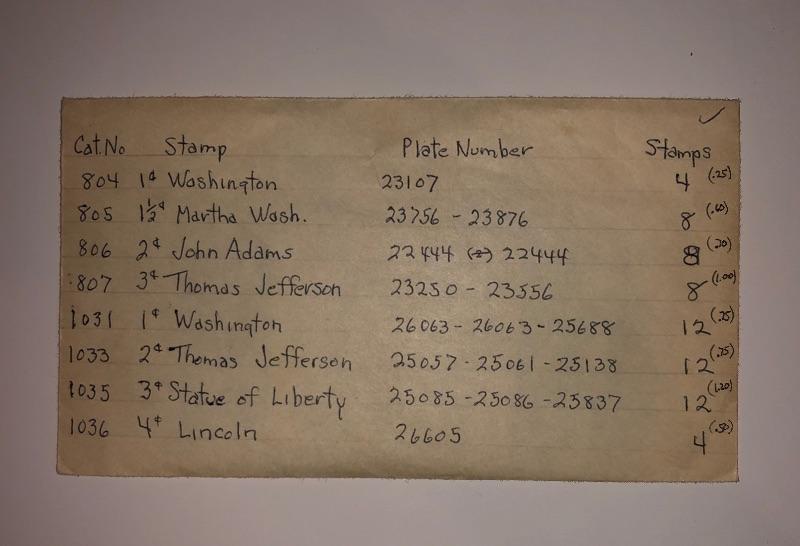 Cat. No Stamp Plate Number Stamps
804 1¢ Washington 23107 4 (.25)
805 1½¢ Martha Wash. 23756 - 23876 8 (.60)
806 2¢ John Adams 22444 (2) 22444 8 (.70)
807 3¢ Thomas Jefferson 23250 - 23556 8 (1.00)
1031 1¢ Washington 26063 - 26063 - 25688 12 (.75)
1033 2¢ Thomas Jefferson 25057 - 25061 - 25138 12 (.75)
1035 3¢ Statue of Liberty 25085 - 25086 - 25837 12 (1.20)
1036 4¢ Lincoln 26605 4 (.50)